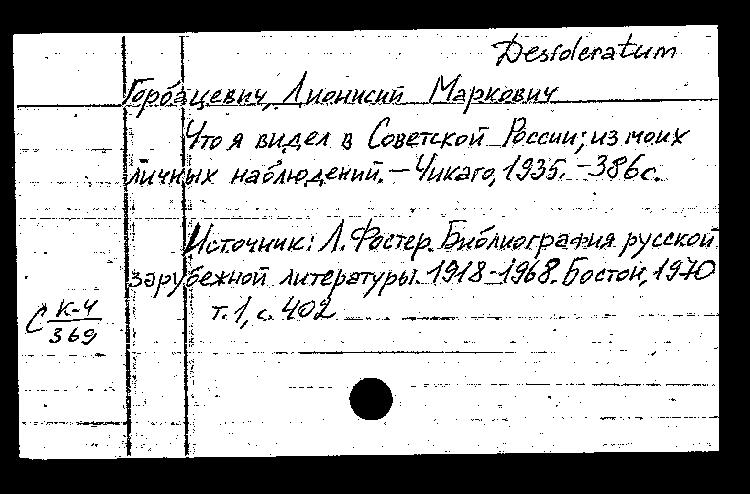 Desideratum
Горбацевич, Дионисий Маркович
Что я видел в Советской России; из моих
личных наблюдений. – Чикаго, 1935. – 386 с.
Источник: Л. Фостер. Библиография русской
зарубежной литературы. 1918-1968. Бостон, 1970
т. 1, с. 402
С К-4
369